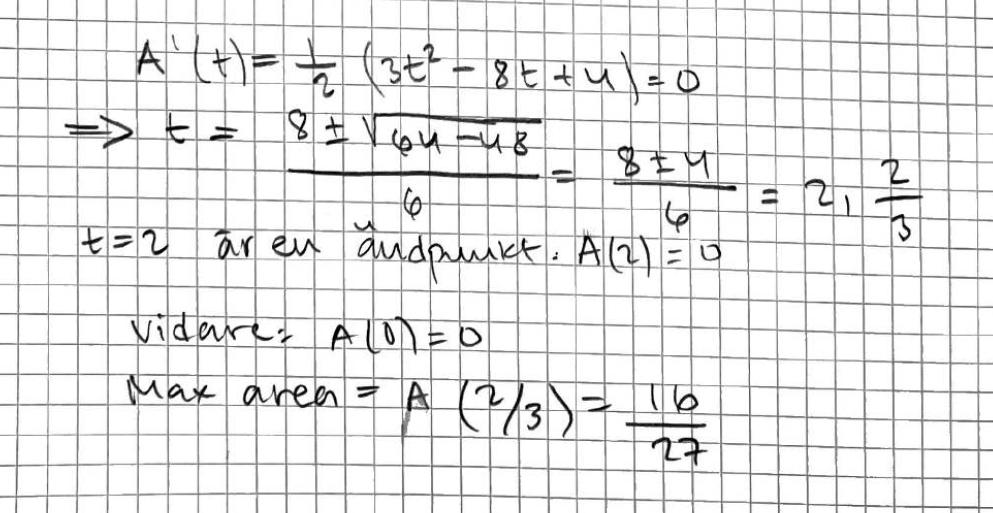 A'(t) = 1/2 (3t² - 8t + 4) = 0
=> t = (8 ± √(64 - 48))/6 = (8 ± 4)/6 = 2, 2/3
t = 2 är en ändpunkt. A(2) = 0
Vidare: A(0) = 0
Max area = A (2/3) = 16/27